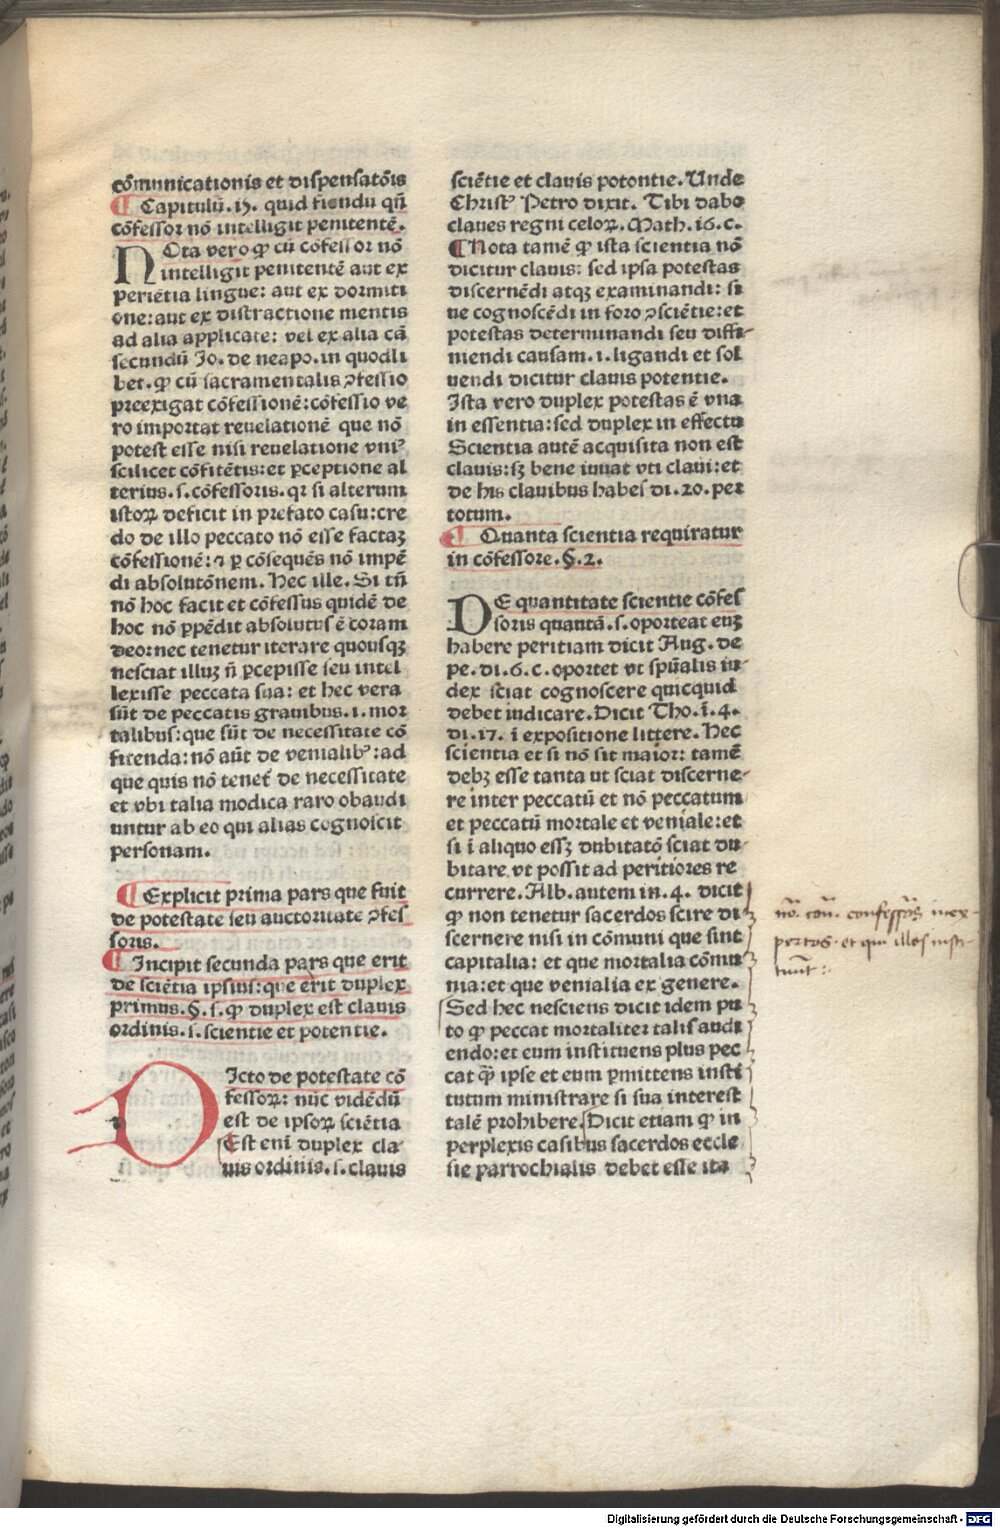 cōmunicationis et dispensatōis
¶ Capitulū. 17. quid fiendū qn̄
cōfessor nō intelligit penitentē.
NOta vero ꝙ cū cōfessor nō
intelligit penitentē aut ex
periētia lingue: aut ex dormiti
one: aut ex distractione mentis
ad alia applicate: vel ex alia cā
secundū Jo. de neapo. in quodli
bet. ꝙ cū sacramentalis ꝯfessio
preexigat cōfessionē: cōfessio ve
ro importat reuelationē que nō
potest esse nisi reuelatione vniꝰ
scilicet cōfitētis: et ꝑceptione al
terius. s. cōfessoris. qr si alterum
istoꝝ deficit in prefato casu: cre
do de illo peccato nō esse factaꝫ
cōfessionē: ⁊ ꝑ cōseqnēs nō impē
di absolutōnem. Hec ille. Si tn̄
nō hoc facit et cōfessus quidē de
hoc nō ꝓpēdit absolutꝰ ē coram
deo: nec tenetur iterare quousqꝫ
nesciat illuꝫ n̄ ꝑcepisse seu intel
lexisse peccata sua: et hec vera
sūt de peccatis grauibus. i. mor
talibus: que sūt de necessitate cō
fitenda: nō aūt de venialibꝰ: ad
que quis nō tenet᷑ de necessitate
et vbi talia modica raro obaudi
untur ab eo qui alias cognoscit
personam.
¶ Explicit prima pars que fuit
de potestate seu auctoritate ꝯfes
soris.
¶ Incipit secunda pars que erit
de sciētia ipsius: que erit duplex
primus. §. s. ꝙ duplex est clauis
ordinis. s. scientie et potentie.
DIcto de potestate cō
fessoꝝ: nūc vidēdū
est de ipsoꝝ sciētia
Est enī duplex cla
uis ordinis. s. clauis
sciētie et clauis potontie. Unde
Christꝰ Petro dixit. Tibi dabo
claues regni celoꝝ. Math. 16. c.
¶ Nota tamē ꝙ ista scientia nō
dicitur clauis: sed ipsa potestas
discernēdi atqꝫ examinandi: si
ue cognoscēdi in foro ꝯsciētie: et
potestas determinandi seu diffi-
niendi causam. i. ligandi et sol
uendi dicitur clauis potentie.
Ista vero duplex potestas ē vna
in essentia: sed duplex in effectu
Scientia autē acquisita non est
clauis: sꝫ bene iuuat vti claui: et
de his clauibus habes di. 20. per
totum.
¶ Quanta scientia requiratur
in cōfessore. §. 2.
DE quantitate scientie cōfes
soris quantā. s. oporteat euꝫ
habere peritiam dicit Aug. de
pe. di. 6. c. oportet vt spūalis iu-
dex sciat cognoscere quicquid
debet iudicare. Dicit Tho. ī. 4.
di. 17. ī expositione littere. Hec
scientia et si nō sit maior: tamē
debꝫ esse tanta ut sciat discerne-
re inter peccatū et nō peccatum
et peccatū mortale et veniale: et
si ī aliquo essꝫ dubitatō sciat du-
bitare vt possit ad peritiores re
currere. Alb. autem in. 4. dicit
ꝙ non tenetur sacerdos scire di
scernere nisi in cōmuni que sint
capitalia: et que mortalia cōmu
nia: et que venialia ex genere.
Sed hec nesciens dicit idem pu
to ꝙ peccat mortaliter talis audi
endo: et eum instituens plus pec
cat ꝙ̄ ipse et eum ꝑmittens insti
tutum ministrare si sua interest
talē prohibere. Dicit etiam ꝙ in
perplexis casibus sacerdos eccle
sie parrochialis debet esse ita
confess᷑os inex-
pertos. et qui illos insti-
tuūt:
Digitalisierung gefördert durch die Deutsche Forschungsgemeinschaft - DFG